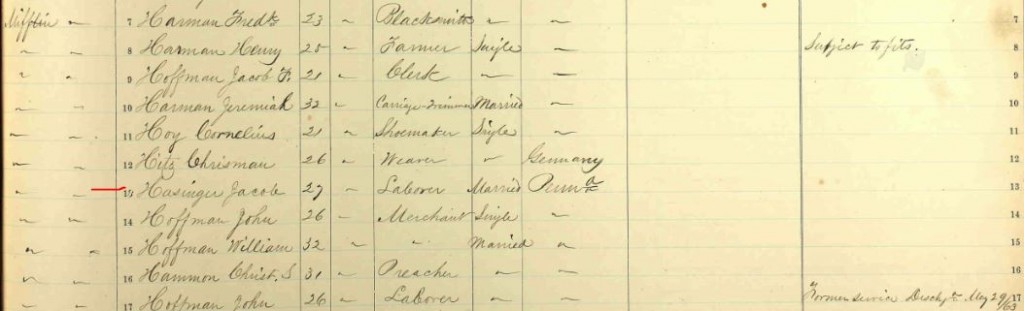 Mifflin " 7 Harman Fredk 23 " Blacksmith " " 7
" " 8 Harman Henry 25 " Farmer Single " Subject to fits. 8
" " 9 Hoffman Jacob F. 21 " Clerk " " 9
" " 10 Harman Jeremiah 32 " Carriage-Trimmer Married " 10
" " 11 Hoy Cornelius 21 " Shoemaker Single " 11
" " 12 Hitz Chrisman 26 " Weaver " Germany 12
" " 13 Hasinger Jacob 27 " Laborer Married Penna 13
" " 14 Hoffman John 26 " Merchant Single " 14
" " 15 Hoffman William 32 " " Married " 15
" " 16 Hammon Christ. S 31 " Preacher " " 16
" " 17 Hoffman John 26 " Laborer " " Former service Dischgd May 29/63 17